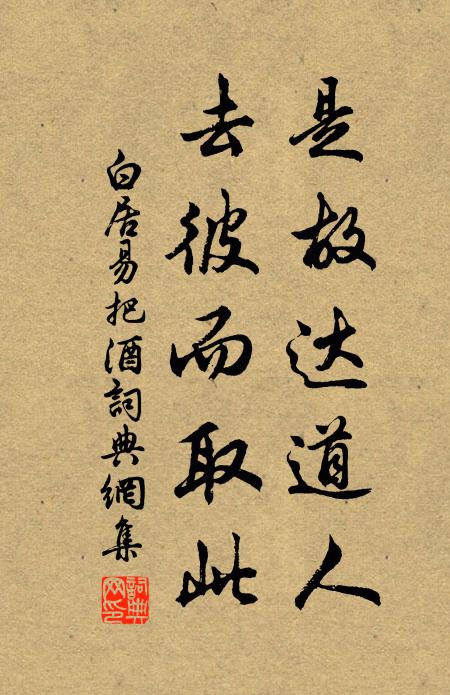 是故达道人
去彼而取此
白居易把酒詞典網集
詞典网印